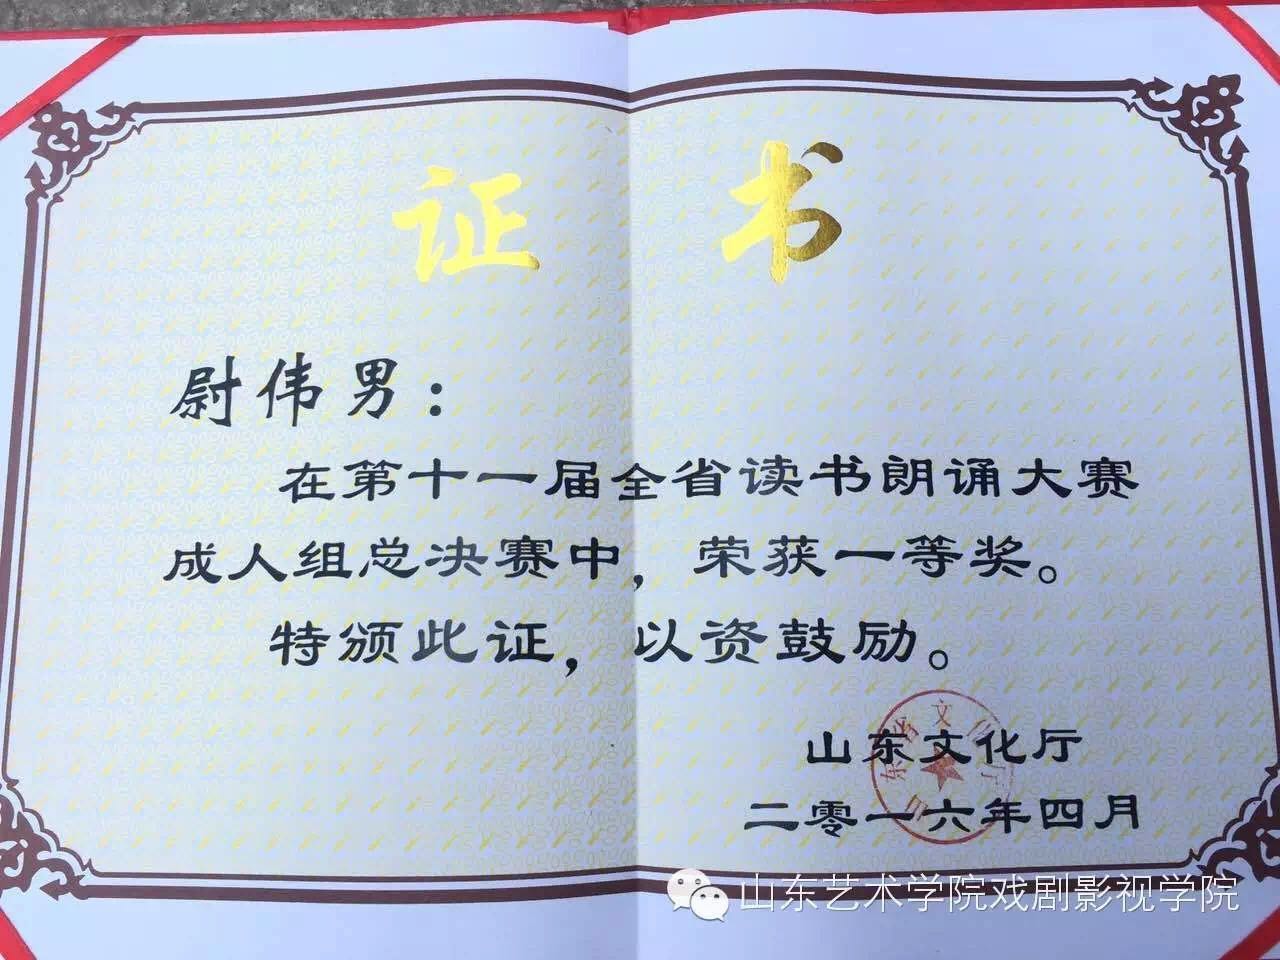 证书
尉伟男：
在第十一届全省读书朗诵大赛
成人组总决赛中，荣获一等奖。
特颁此证，以资鼓励。
山东文化厅
二零一六年四月
山东艺术学院戏剧影视学院